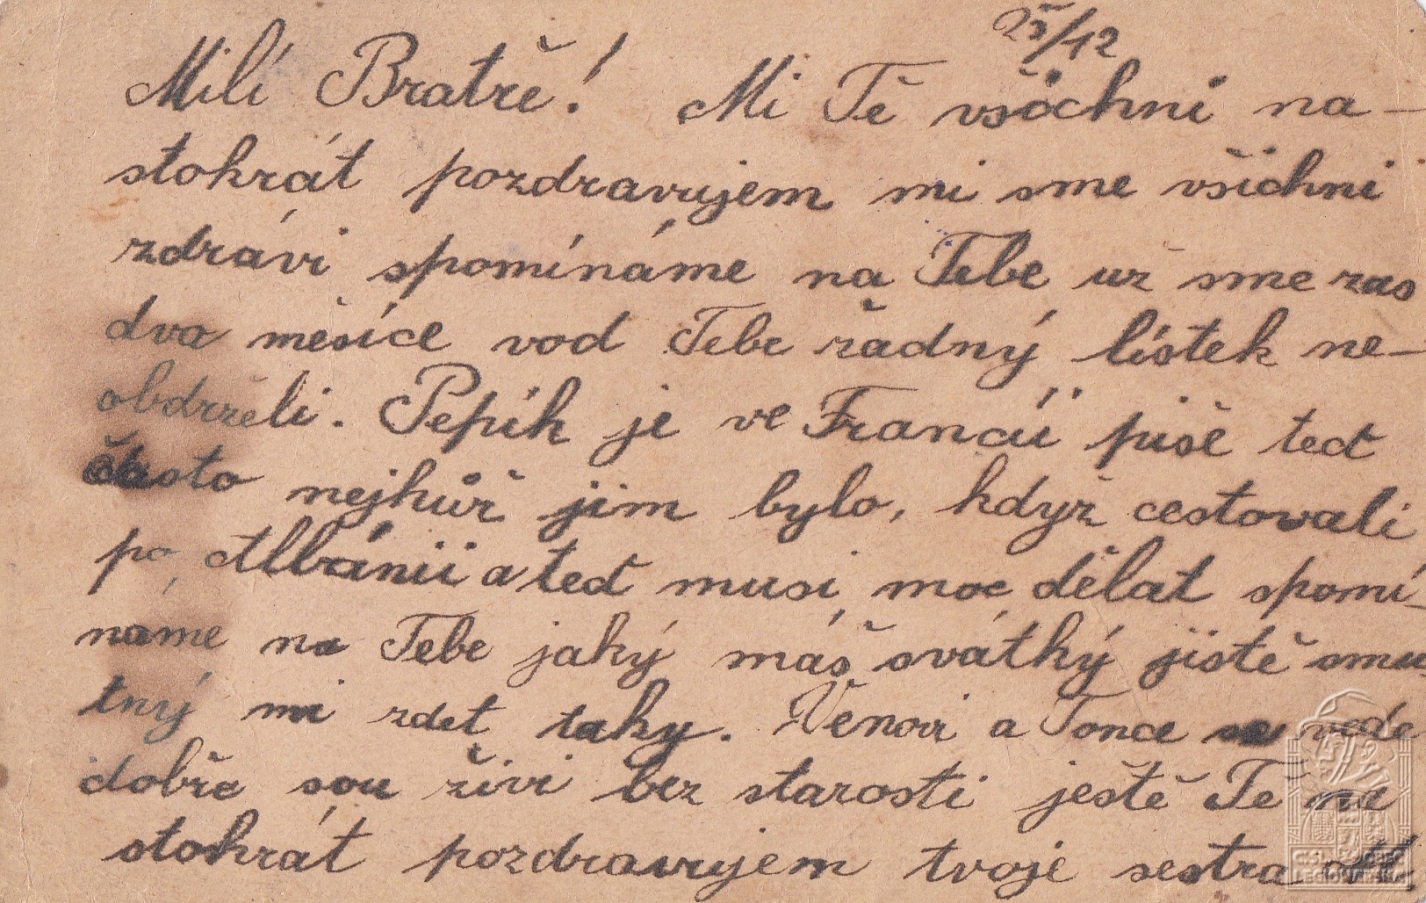 25/12
Milí Bratře! Mi Tě všichní na-
stokrát pozdravujem mi sme všichni
zdrávi spomínáme na Tebe už sme zas
dva měsíce vod Tebe řádný lístek ne-
obdrželi. Pepík je ve Francíi pišě teď
často nejhůř jim bylo, když cestovali
po Albánii a teď musí moc dělat spomí-
náme na Tebe jaký máš svátký jistě smu
tný mi zdet taky. Věnovi a Tonce se vede
dobře sou živi bez starosti ještě Tě na
stokrát pozdravujem tvoje sestra
ČSL. OBEC
LEGIONÁŘSKÁ